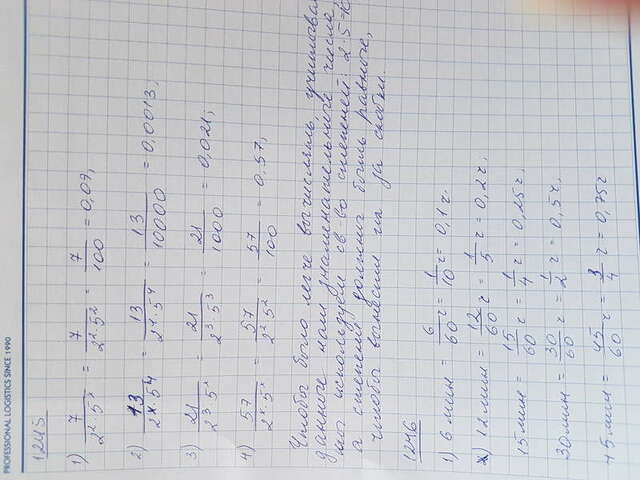 PROFESSIONAL LOGISTICS SINCE 1990
1245
1) 7/(2²·5ˣ) = 7/(2²·5²) = 7/100 = 0,07;
2) 13/(2ˣ·5⁴) = 13/(2⁴·5⁴) = 13/10000 = 0,0013;
3) 21/(2³·5ˣ) = 21/(2³·5³) = 21/1000 = 0,021;
4) 57/(2ˣ·5ˣ) = 57/(2²·5²) = 57/100 = 0,57;
Чтобы было легче вычислять, учитывая
данные нам знаменательные числа,
мы используем св-во степеней: 2·5=10
а степени должны быть равные,
чтобы вынести их за скобки.
1246
1) 6 мин = 6/60 ч = 1/10 ч = 0,1 ч.
2) 12 мин = 12/60 ч = 1/5 ч = 0,2 ч;
15 мин = 15/60 ч = 1/4 ч = 0,25 ч;
30 мин = 30/60 ч = 1/2 ч = 0,5 ч,
45 мин = 45/60 ч = 3/4 ч = 0,75 ч